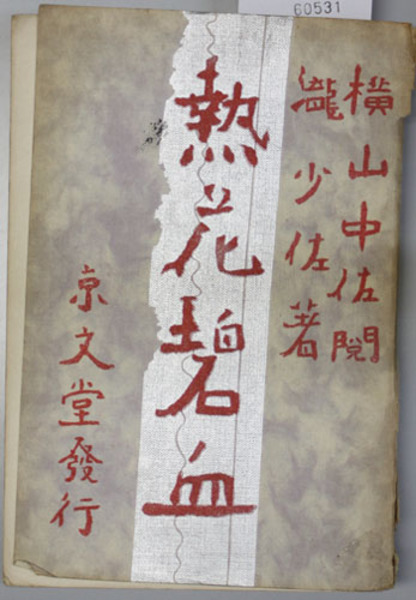 60531
橫山中佐閱
瀧少佐著
熱花碧血
京文堂發行